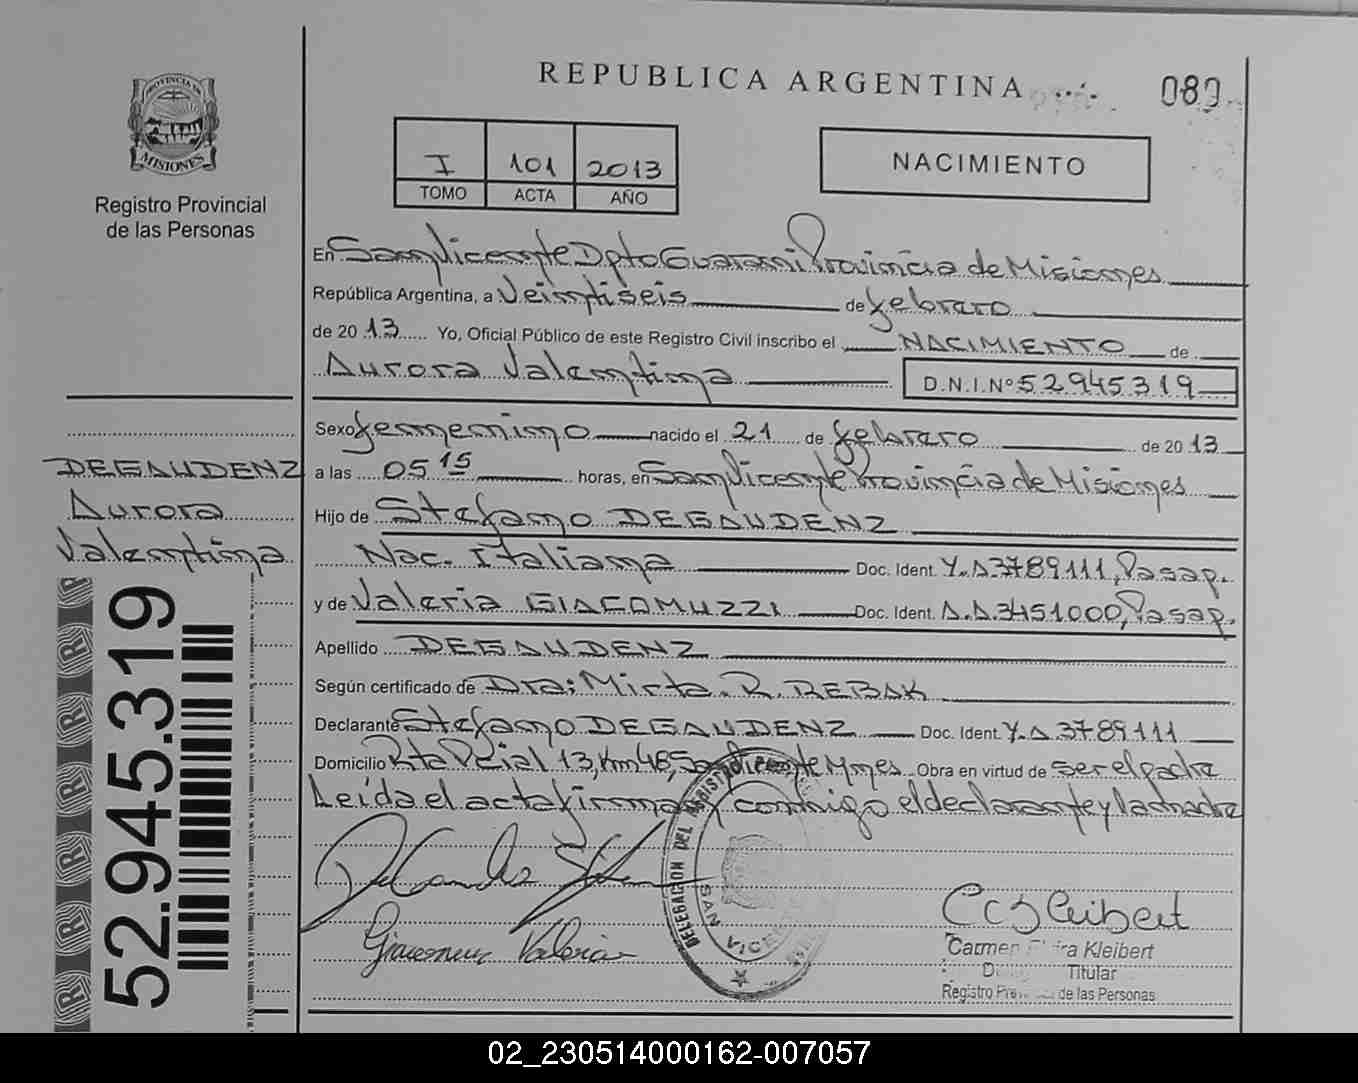 REPUBLICA ARGENTINA
089
PROVINCIA DE
MISIONES
Registro Provincial
de las Personas
I 101 2013
TOMO ACTA AÑO
NACIMIENTO
En San Vicente Dpto Guarani Provincia de Misiones
República Argentina, a Veintiseis de febrero
de 2013 Yo, Oficial Público de este Registro Civil inscribo el NACIMIENTO de
Aurora Valentina D.N.I.Nº 52945319
Sexo femenino nacido el 21 de febrero de 2013
a las 05 15 horas, en San Vicente Provincia de Misiones
Hijo de Stefano DEGAUDENZ
Nac. Italiana Doc. Ident. Y.A.3789111, Pasap.
y de Valeria GIACOMUZZI Doc. Ident. A.A.3451000, Pasap.
Apellido DEGAUDENZ
Según certificado de Dra: Mirta. R. REBAK
Declarante Stefano DEGAUDENZ Doc. Ident. Y.A 3789111
Domicilio Rta Pcial 13, Km 48, San Vicente Mnes Obra en virtud de ser el padre
Leida el acta firman conmigo el declarante y la madre
DEGAUDENZ
Aurora
Valentina
52.945.319
R R R R R R
DELEGACION DEL REGISTRO
SAN VICENTE
Giacomuzzi Valeria
Kleibert
Carmen Kleibert
Titular
Registro de las Personas
02_230514000162-007057